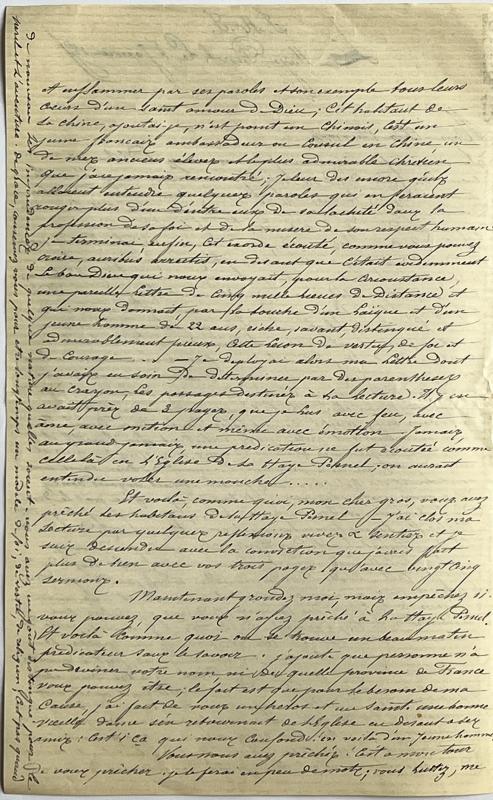 et enflammer par ses paroles et son exemple tous leurs
cœurs d'un saint amour de Dieu; Cet habitant de
la Chine, ajoutai-je, n'est point un Chinois, c'est un
jeune français ambassadeur ou Consul en Chine, un
de mes anciens élèves et le plus admirable chretien
que j'aie jamais rencontré; je leur dis encore qu'ils
allaient entendre quelques paroles qui en feraient
rougir plus d'un d'entre eux de sa lacheté dans la
profession de sa foi et de la misere de son respect humain
je terminai enfin, cet exorde écouté, comme vous pouvez
croire, auribus arrectis, en disant que c'était evidemment
le bon Dieu qui nous envoyait, pour la circonstance,
une pareille lettre de cinq mille lieues de distance et
qui nous donnait, par la bouche d'un laïque et d'un
jeune homme de 22 ans, riche, savant distingué et
admirablement pieux, cette leçon de vertu, de foi et
de courage . . . — Je deployai alors ma lettre dont
j'avais eu soin de determiner par des parentheses
au crayon, les passages destinés à la lecture. Il y en
avait près de 3 pages, que je lus avec feu, avec
âme avec onction et même avec émotion jamais,
au grand jamais, une predication ne fut écoutée comme
celle là en l'Eglise de La Haye Pesnel; on aurait
entendu voler une mouche . . . . .
Et voilà, comme quoi, mon cher gros, vous avez
prêché les habitans de la Haye Pesnel — J'ai clos ma
lecture par quelques reflexions vives & senties et je
suis descendu avec la conviction que j'avais fait
plus de bien avec vos trois pages qu'avec vingt cinq
sermons.
Maintenant grondez moi, mais empêchez si
vous pouvez, que vous n'ayez prêché à La Haye Pesnel
Et voilà comme quoi on se trouve un beau matin
predicateur sans le savoir. j'ajoute que personne n'a
pu deviner votre nom ni de quelle province de France
vous pouvez être; le fait est que pour le besoin de ma
Cause, j'ai fait de vous un heros et un Saint; une bonne
vieille dame s'en retournant de l'Eglise en disait à ses
amis: C'est ça qui nous confond: en voilà d'un jeune homme,
Vous nous avez prêchés: c'est à mon tour
de vous prêcher. je le ferai en peu de mots; vous luttez, me
de nouveau